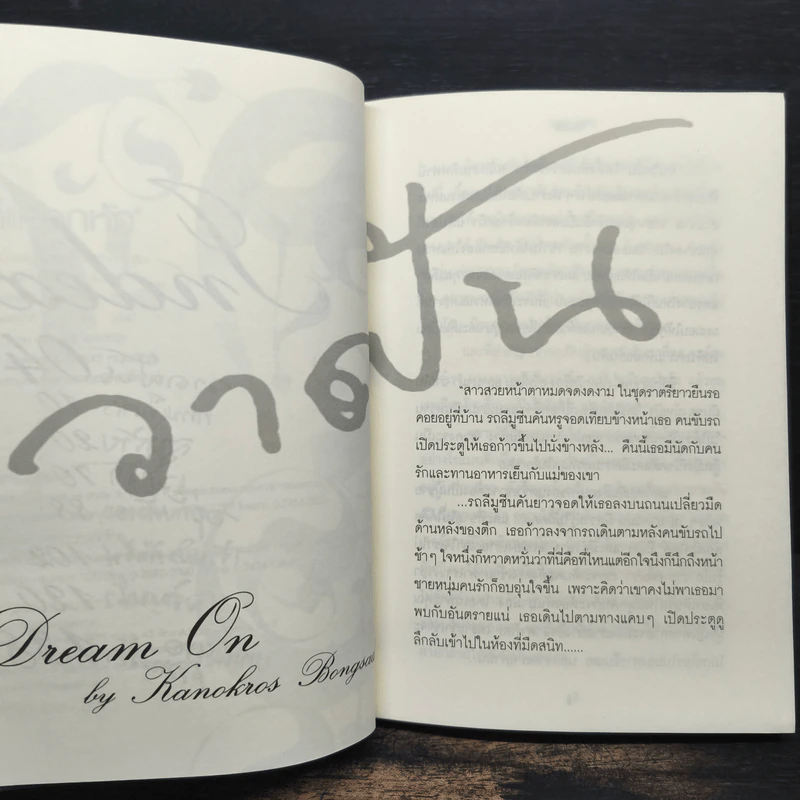 วาดฝัน
Dream On
by Kanokros
"สาวสวยหน้าตาหมดจดงดงาม ในชุดราตรียาวยืนรอ
คอยอยู่ที่บ้าน รถลีมูซีนคันหรูจอดเทียบข้างหน้าเธอ คนขับรถ
เปิดประตูให้เธอก้าวขึ้นไปนั่งข้างหลัง... คืนนี้เธอมีนัดกับคน
รักและทานอาหารเย็นกับแม่ของเขา
...รถลีมูซีนคันยาวจอดให้เธอลงบนถนนเปลี่ยวมืด
ด้านหลังของตึก เธอก้าวลงจากรถเดินตามหลังคนขับรถไป
ช้าๆ ใจหนึ่งก็หวาดหวั่นว่าที่นี่คือที่ไหนแต่อีกใจนึงก็นึกถึงหน้า
ชายหนุ่มคนรักก็อบอุ่นใจขึ้น เพราะคิดว่าเขาคงไม่พาเธอมา
พบกับอันตรายแน่ เธอเดินไปตามทางแคบๆ เปิดประตูดู
ลึกลับเข้าไปในห้องที่มืดสนิท......